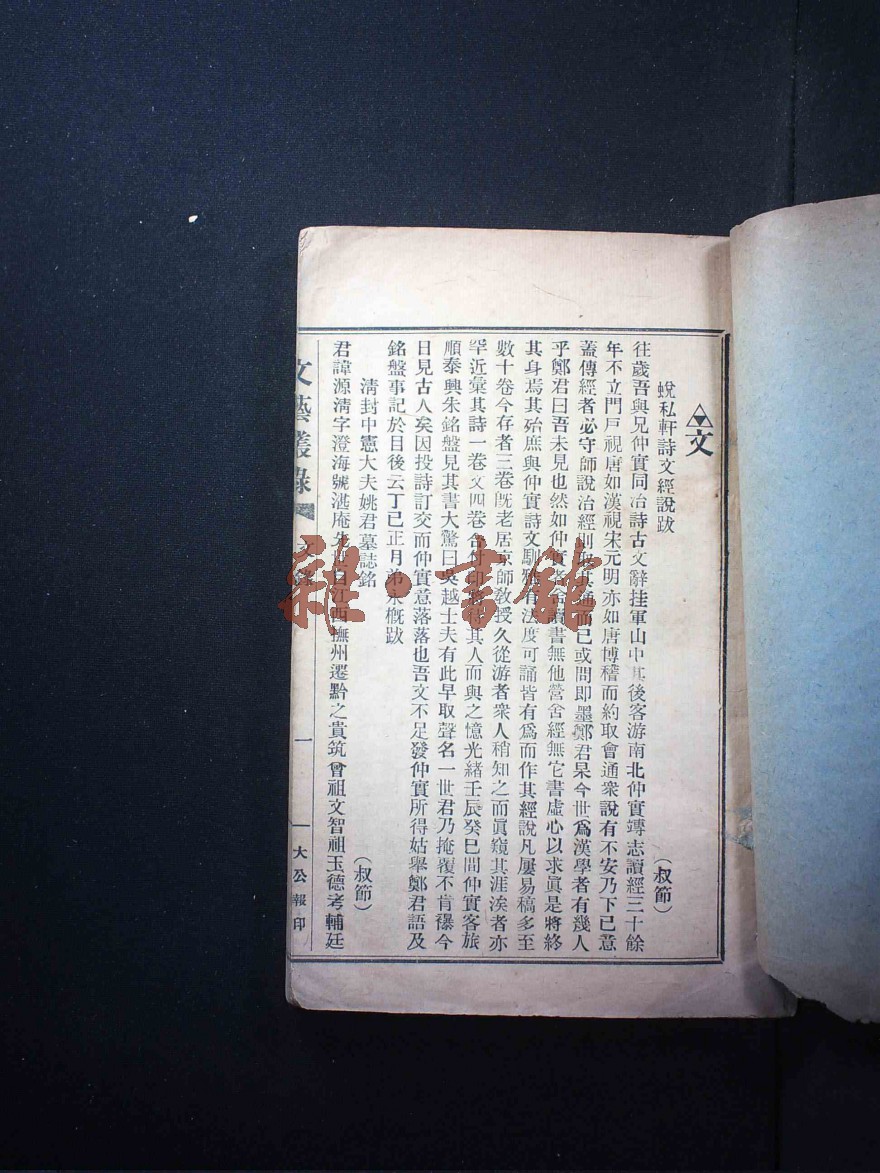 文
蛻私軒詩文經說跋
（叔節）
往歲吾與兄仲實同治詩古文辭挂軍山中其後客游南北仲實竱志讀經三十餘
年不立門戶視唐如漢視宋元明亦如唐博稽而約取會通衆說有不安乃下已意
蓋傳經者必守師說治經則取其通而已或問即墨鄭君杲今世爲漢學者有幾人
乎鄭君曰吾未見也然如仲實舍讀書無他營舍經無它書虛心以求眞是將終
其身焉其殆庶與仲實詩文馴雅有法度可誦皆有爲而作其經說凡屢易稿多至
數十卷今存者三卷旣老居京師敎授久從游者衆人稍知之而眞窺其涯涘者亦
罕近彙其詩一卷文四卷合付印得其人而與之憶光緖壬辰癸巳間仲實客旅
順泰興朱銘盤見其書大驚曰吳越士夫有此早取聲名一世君乃掩覆不肯襮今
日見古人矣因投詩訂交而仲實意落落也吾文不足發仲實所得姑舉鄭君語及
銘盤事記於目後云丁巳正月弟永概跋
淸封中憲大夫姚君墓誌銘
（叔節）
君諱源淸字澄海號湛庵先自江西撫州遷黔之貴筑曾祖文智祖玉德考輔廷
文藝叢錄
文錄
一
大公報印
雜·書館